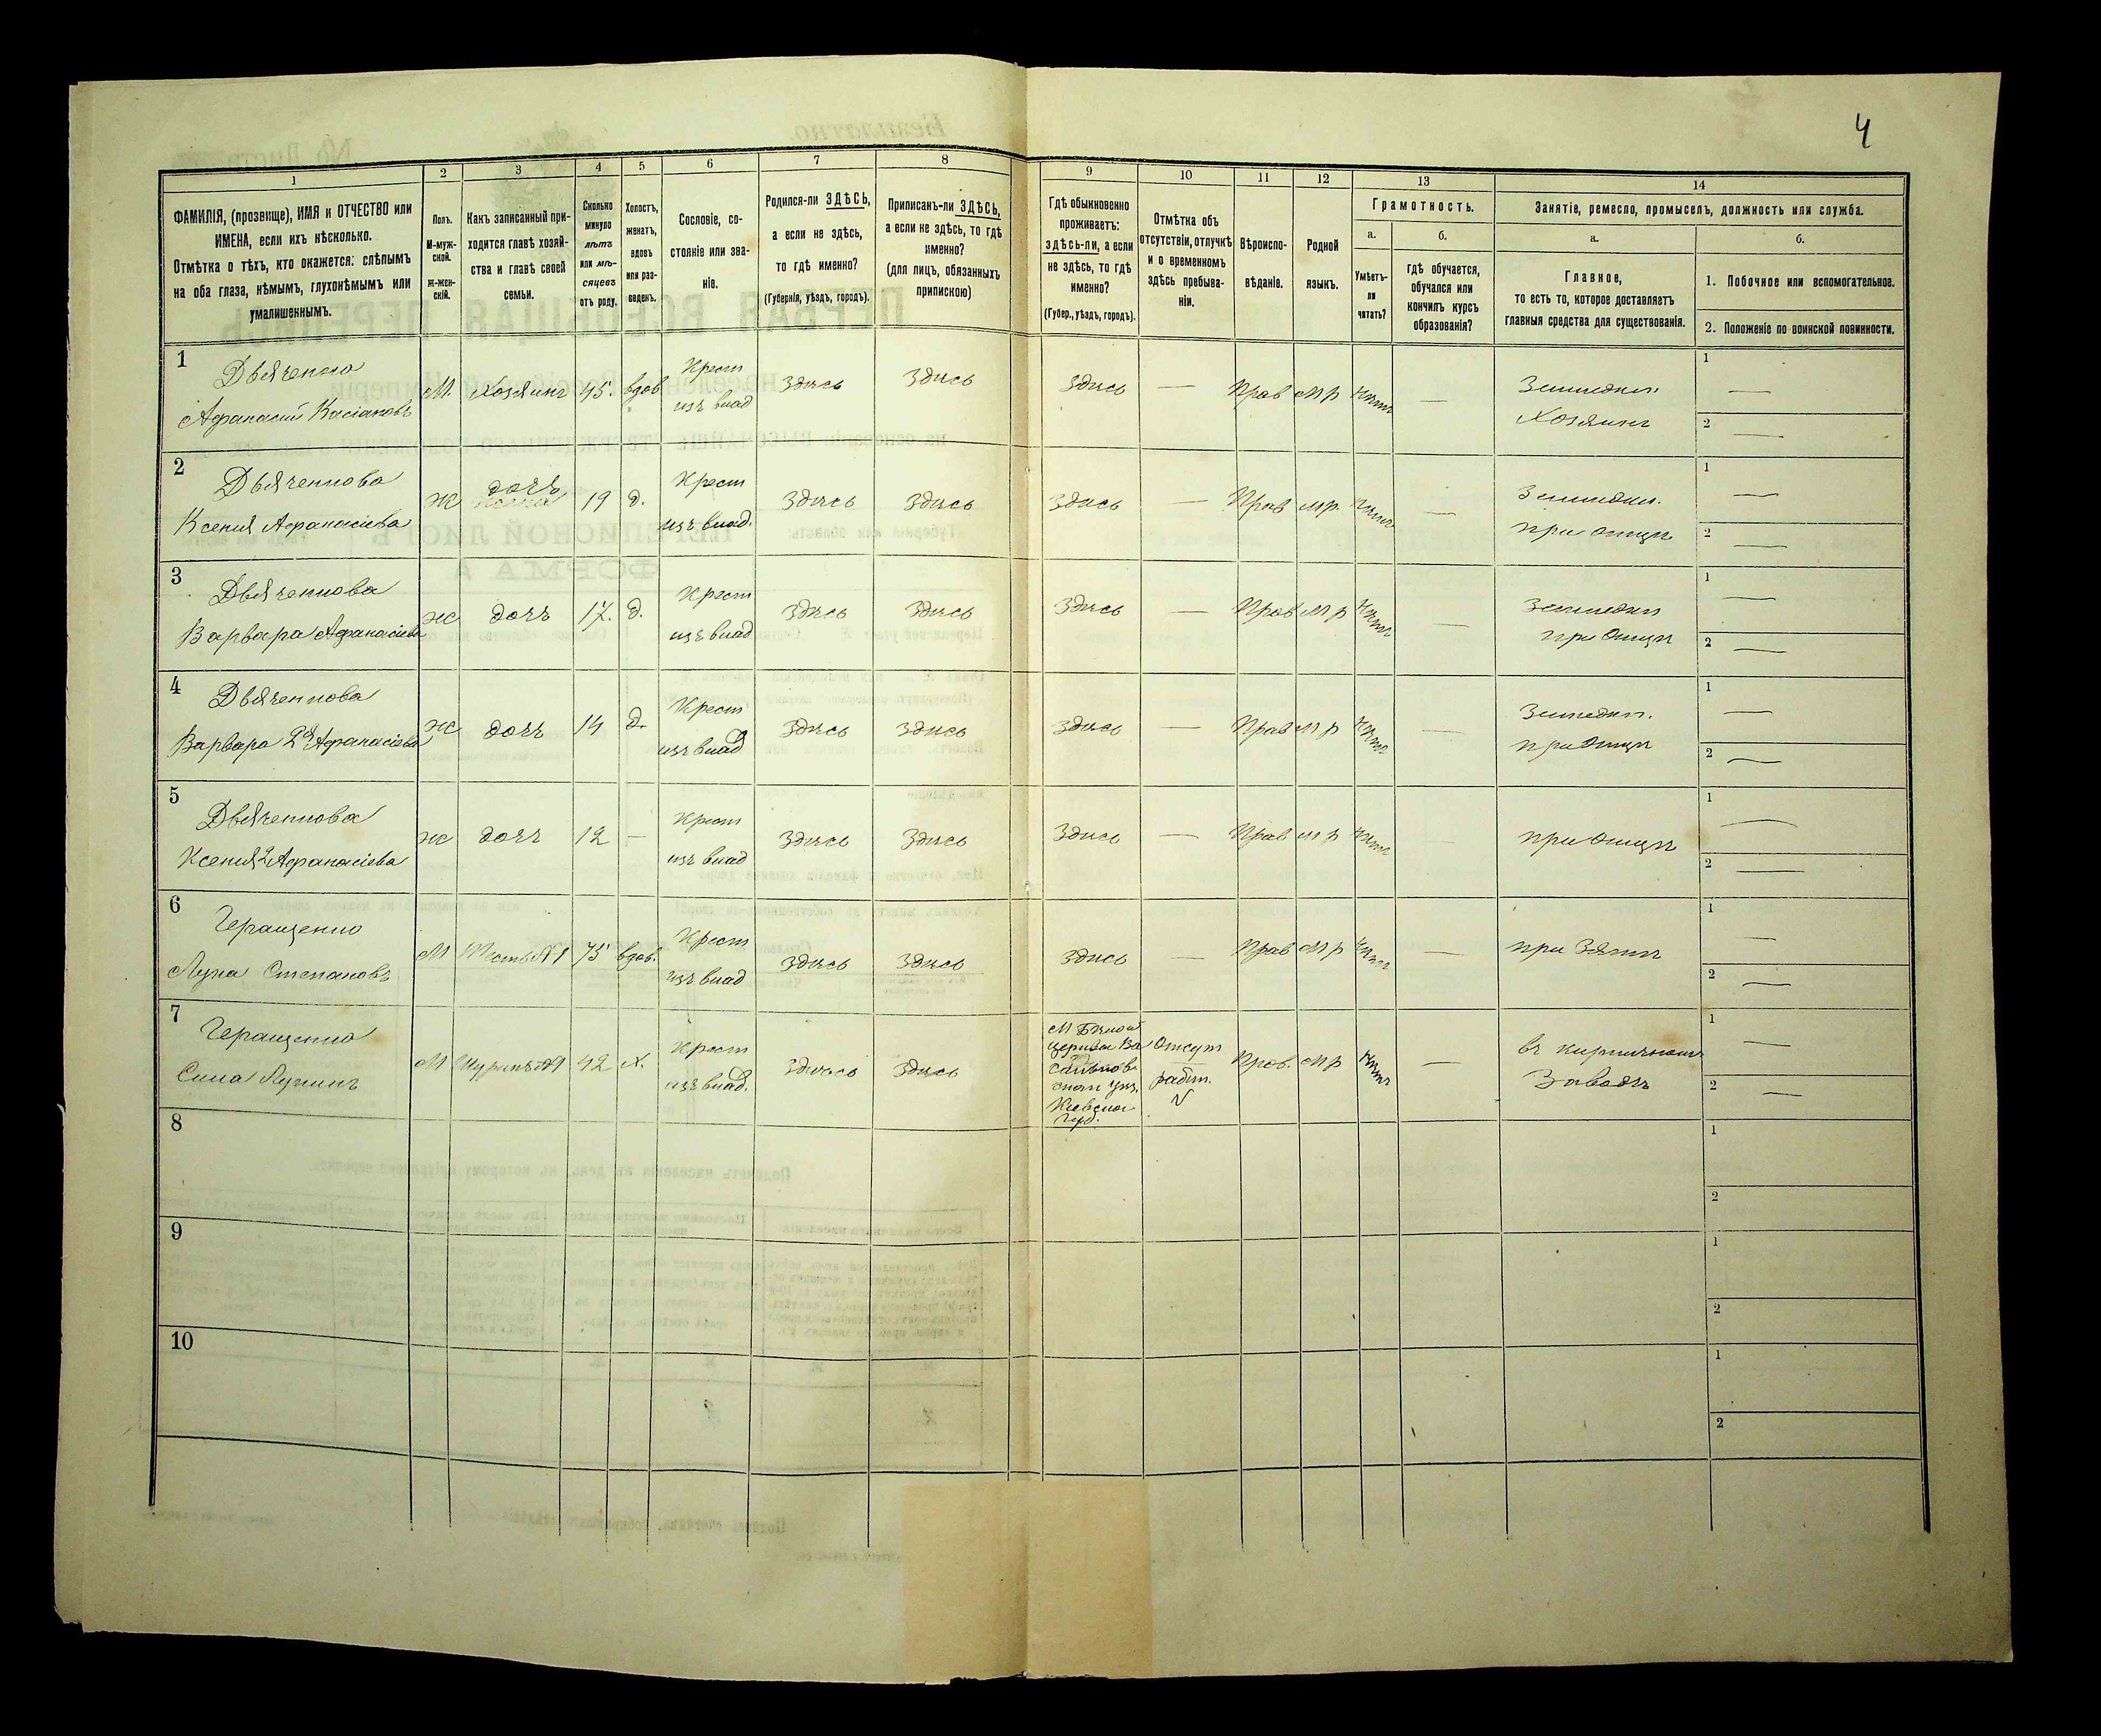 4
1
2
3
4
5
6
7
8
9
10
11
12
13
14
ФАМИЛІЯ, (прозвище), ИМЯ и ОТЧЕСТВО или
ИМЕНА, если ихъ нѣсколько.
Отмѣтка о тѣхъ, кто окажется: слѣпымъ
на оба глаза, нѣмымъ, глухонѣмымъ или
умалишеннымъ.
Полъ.
М-муж-
ской.
Ж-жен-
скій.
Какъ записанный при-
ходится главѣ хозяй-
ства и главѣ своей
семьи.
Сколько
минуло
лѣтъ
или мѣ-
сяцевъ
отъ роду.
Холостъ,
женатъ,
вдовъ
или раз-
веденъ.
Сословіе, со-
стояніе или зва-
ніе.
Родился-ли ЗДѢСЬ,
а если не здѣсь,
то гдѣ именно?
(Губернія, уѣздъ, городъ).
Приписанъ-ли ЗДѢСЬ,
а если не здѣсь, то гдѣ
именно?
(для лицъ, обязанныхъ
припискою)
Гдѣ обыкновенно
проживаетъ:
здѣсь-ли, а если
не здѣсь, то гдѣ
именно?
(Губер., уѣздъ, городъ).
Отмѣтка объ
отсутствіи, отлучкѣ
и о временномъ
здѣсь пребыва-
ніи.
Вѣроиспо-
вѣданіе.
Родной
языкъ.
Грамотность.
а.
Умѣетъ-
ли
читать?
б.
Гдѣ обучается,
обучался или
кончилъ курсъ
образованія?
Занятіе, ремесло, промыселъ, должность или служба.
а.
Главное,
то есть то, которое доставляетъ
главныя средства для существованія.
б.
1. Побочное или вспомогательное.
2. Положеніе по воинской повинности.
1
Афанасій Касіановъ
М. Хозяинъ 45. вдов
Крест
изъ влад
Здѣсь Здѣсь Здѣсь — Прав М р Нѣтъ —
Земледѣл.
Хозяинъ
1 —
2 —
2
Ксенія Афанасіева
Ж дочь 19 д.
Крест
изъ влад.
Здѣсь Здѣсь Здѣсь — Прав м р. Нѣтъ —
Земледѣл.
при отцѣ
1 —
2 —
3
Варвара Афанасіева
Ж дочь 17. д.
Крест
изъ влад
Здѣсь Здѣсь Здѣсь — Прав М р Нѣтъ —
Земледѣл
при Отцѣ
1 —
2 —
4
Варвара 2я Афанасіева
Ж дочь 14 д.
Крест
изъ влад
Здѣсь Здѣсь Здѣсь — Прав М р Нѣтъ —
Земледѣл.
при Отцѣ
1 —
2 —
5
Ксенія 2 Афанасіева
Ж дочь 12 —
Крест
изъ влад
Здѣсь Здѣсь Здѣсь — Прав м р Нѣтъ
при Отцѣ
1 —
2 —
6
Геращенко
Лука Степановъ
М Тесть №1 75 вдов.
Крест
изъ влад
Здѣсь Здѣсь Здѣсь — Прав М р Нѣтъ —
при Зятѣ
1 —
2 —
7
Геращенко
Сила Лукинъ
М Шуринъ №1 42 х.
Крест
изъ влад.
Здѣсь Здѣсь
М Бѣлой
церкви Ва
сильков
ском уѣз.
Кіевской
Губ.
Отсут
работ.
Прав. М р Нѣтъ —
въ кирпичномъ
Заводѣ
1 —
2 —
8
1
2
9
1
2
10
1
2